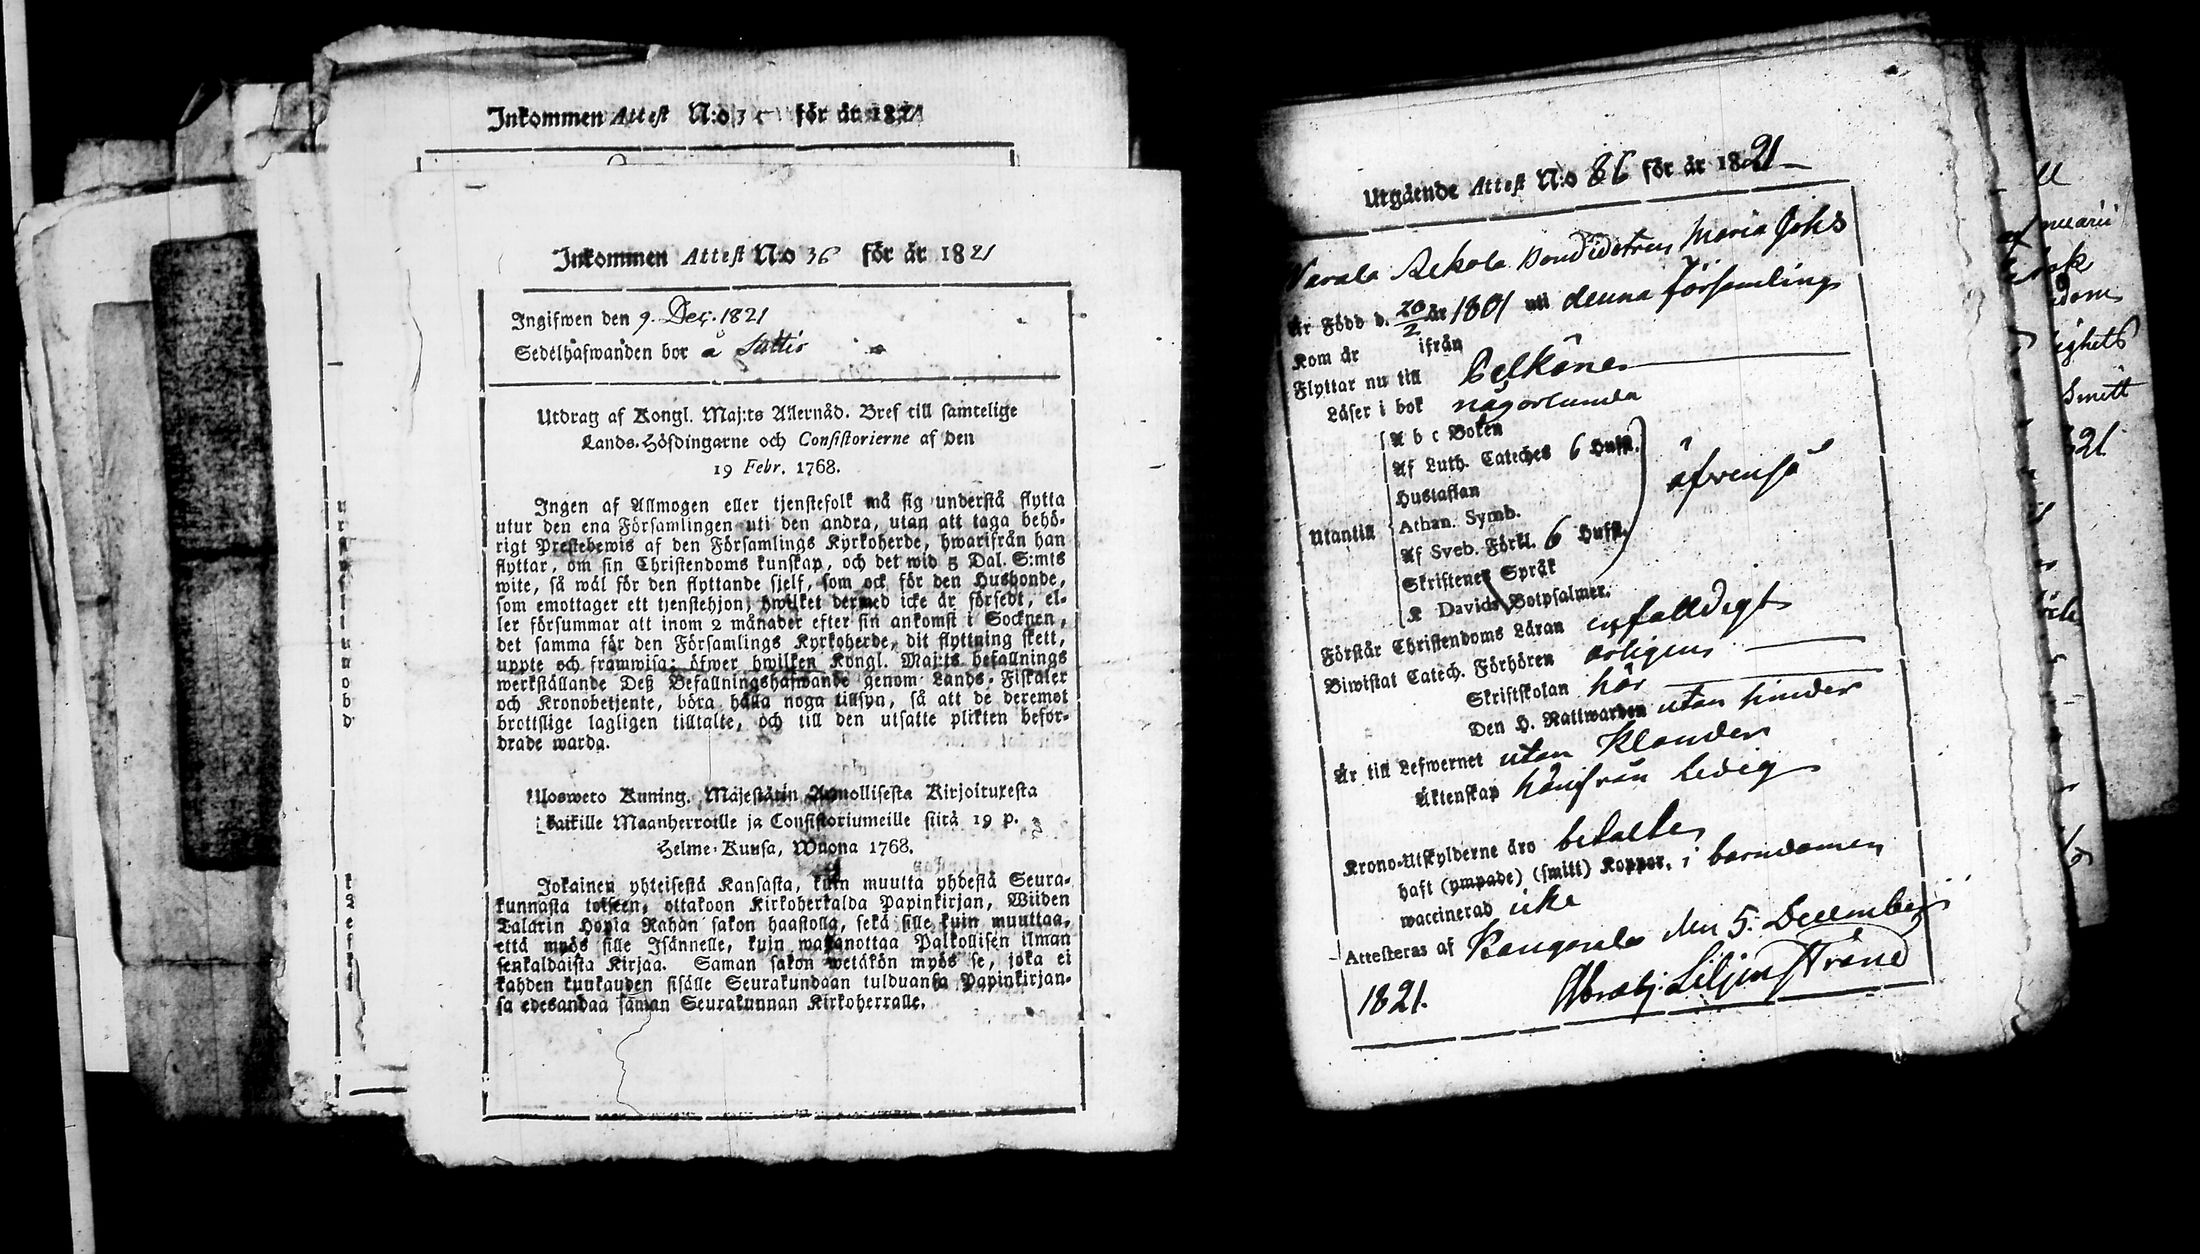 Inkommen Attest N:o 3 för år 1821
Inkommen Attest N:o 36 för år 1821
Ingifwen den 9. Dec. 1821
Sedelhafwanden bor å Sattis
Utdrag af Kongl. Maj:ts Allernåd. Bref till samtelige
Lands-Höfdingarne och Consistorierne af den
19 Febr. 1768.
Ingen af Allmogen eller tjenstefolk må sig understå flytta
utur den ena Församlingen uti den andra, utan att taga behö-
rigt Prestebewis af den Församlings Kyrkoherde, hwarifrån han
flyttar, om sin Christendoms kunskap, och det wid 5 Dal. S:mts
wite, så wäl för den flyttande sjelf, som ock för den Husbonde,
som emottager ett tjenstehjon, hwilket dermed icke är försedt, el-
ler försummar att inom 2 månader efter sin ankomst i Socknen,
det samma för den Församlings Kyrkoherde, dit flyttning skett,
uppte och framwisa; öfwer hwilken Kongl. Maj:ts befallnings
werkställande Deß Befallningshafwande genom Lands-Fiskaler
och Kronobetjente, böra hålla noga tillsyn, så att de deremot
brottslige lagligen tilltalte, och till den utsatte plikten befor-
drade warda.
Ulosweto Kuning. Majestätin Armollisesta Kirjoituxesta
kaikille Maanherroille ja Consistoriumeille siitä 19 p.
Helme-Kuusa, Wuona 1768.
Jokainen yhteisestä Kansasta, kuin muutta yhdestä Seura-
kunnasta toiseen, ottakoon Kirkoherkalda Papinkirjan, Wiiden
Talarin Hopia Rahan sakon haastolla, sekä sille kuin muuttaa,
että myös sille Isännelle, kujn wastanottaa Palkollisen ilman
senkaldaista Kirjaa. Saman sakon wetäkön myös se, joka ei
kahden kuukauden sisälle Seurakundaan tulduansa Papinkirjan-
sa edesandaa saman Seurakunnan Kirkoherralle.
Utgående Attest N:o 86 för år 1821
Bonddottren Maria Johs
Är Född d. 20/2 år 1801 uti denna församling
Kom år ifrån
Flyttar nu till Pelkäne
Läser i bok någorlunda
Utantill
A b c Boken
Af Luth. Cateches 6 Hufst.
Hustaflan
Athan. Symb.
Af Sveb. Förkl. 6 Hufst.
Skriftenes Språk
K Davids Botpsalmer.
äfwenså
Förstår Christendoms Läran enfalldigt
Biwistat Catech. Förhören årligen
Skriftskolan här
Den H. Nattwarden utan hinder
Är till Lefwernet utan klander
Äktenskap hänifrån ledig
Krono-Utskylderne äro betalte
haft (ympade) (smitt) Koppor, i barndomen
waccinerad icke
Attesteras af Kangasala den 5. December
1821. Abrah: Liljenstrand